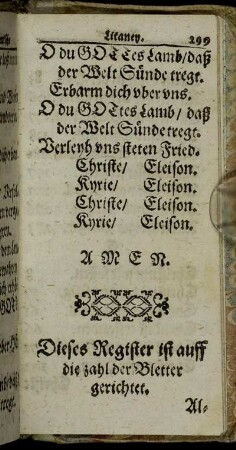 Litaney. 299
O du GOTTes Lamb/ daß
der Welt Sünde tregt.
Erbarm dich vber vns.
O du GOTtes Lamb/ daß
der Welt Sünde tregt.
Verleyh vns steten Fried.
Christe/ Eleison.
Kyrie/ Eleison.
Christe/ Eleison.
Kyrie/ Eleison.
A M E N.
Dieses Register ist auff
die zahl der Bletter
gerichtet.
Al-